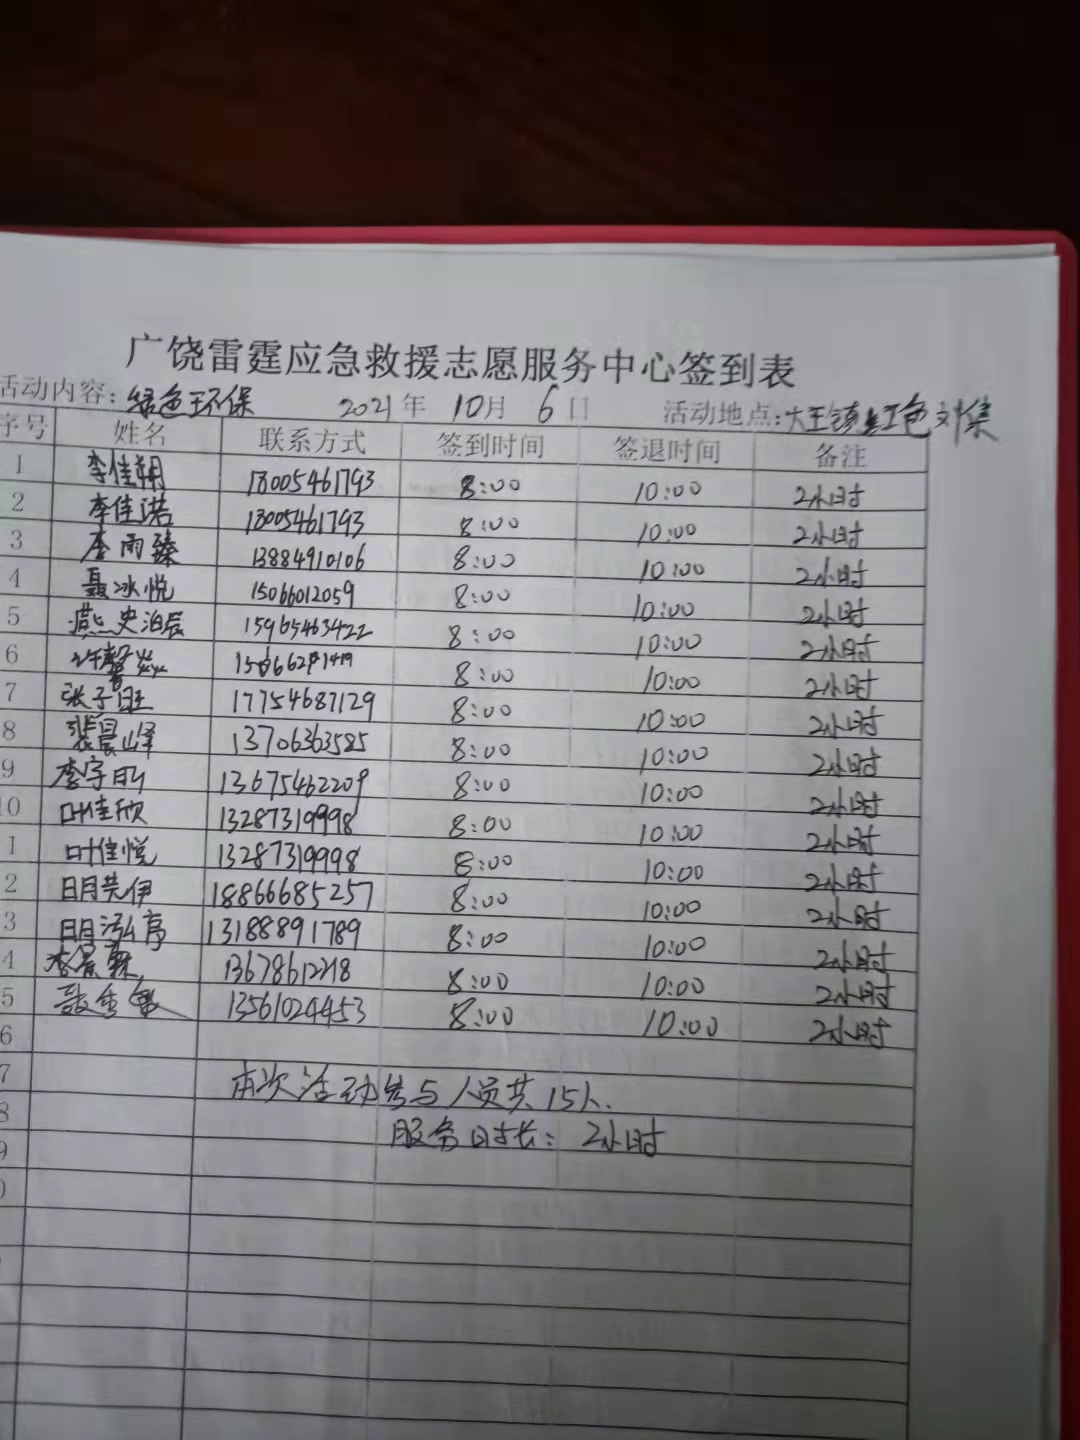 广饶雷霆应急救援志愿服务中心签到表
活动内容:绿色环保 2021年 10月 6日 活动地点:大王镇红色刘集
序号 姓名 联系方式 签到时间 签退时间 备注
1 李佳朔 18005461793 8:00 10:00 2小时
2 李佳诺 18005461793 8:00 10:00 2小时
3 李雨臻 13884910106 8:00 10:00 2小时
4 聂冰悦 15066012059 8:00 10:00 2小时
5 燕史泊辰 15965463422 8:00 10:00 2小时
6 许馨 8:00 10:00 2小时
7 张子旺 17754687129 8:00 10:00 2小时
8 裴晨峰 13706363585 8:00 10:00 2小时
9 李宇昕 13675462209 8:00 10:00 2小时
0 叶佳欣 13287319998 8:00 10:00 2小时
1 叶佳悦 13287319998 8:00 10:00 2小时
2 明芸伊 18866685257 8:00 10:00 2小时
3 明泓亨 13188891789 8:00 10:00 2小时
4 李景霖 8:00 10:00 2小时
5 13561024453 8:00 10:00 2小时
6
7 本次活动参与人员共15人.
8 服务时长:2小时
9
0